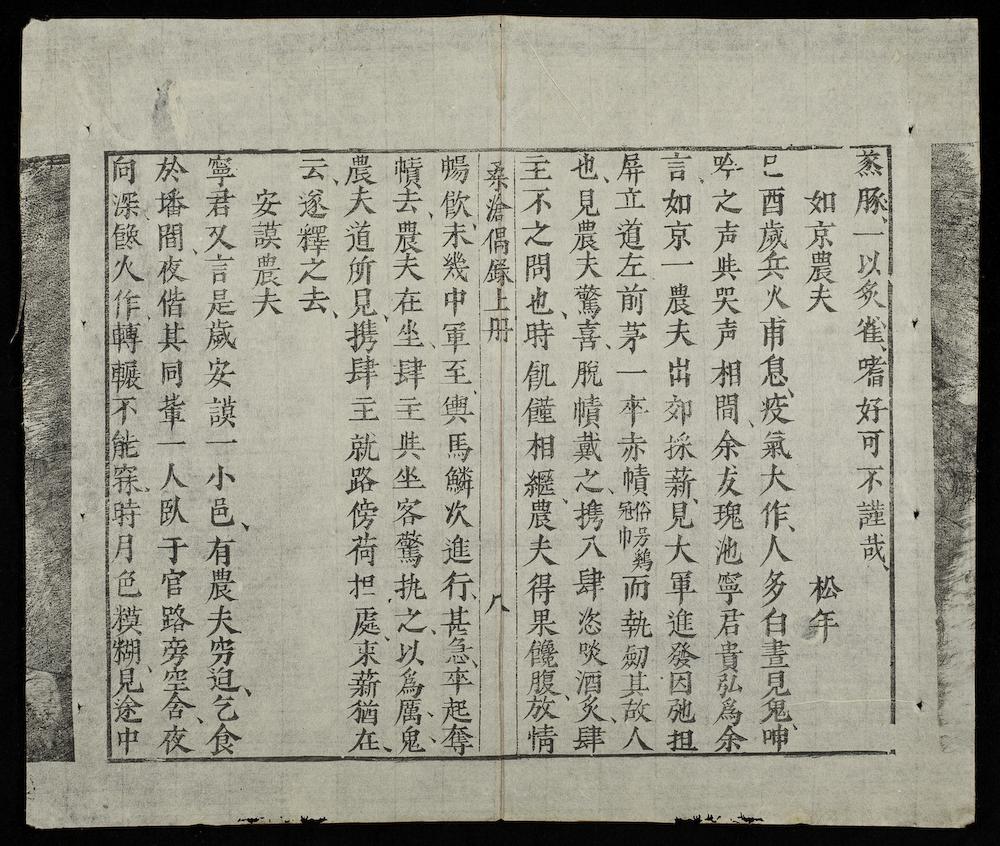 蒸豚、一以炙雀、嗜好可不謹哉、
如京農夫 松年
己酉歲兵火甫息、疫氣大作、人多白晝見鬼、呻
吟之声與哭声相間、余友瑰池寧君貴弘為余
言、如京一農夫出郊採薪、見大軍進發、因弛担
屏立道左、前茅一卒赤幘俗号鷄冠巾而執劎、其故人
也、見農夫驚喜、脫幘戴之、携入肆恣啖酒炙、肆
主不之問也、時飢饉相繼、農夫得果饞腹、放情
桑滄偶錄上册 八
暢飲、未幾中軍至、輿馬鱗次進行、甚急、卒起奪
幘去、農夫在坐、肆主與坐客驚执之、以為厲鬼、
農夫道所見、携肆主就路傍荷担處、束薪猶在、
云、遂釋之去、
安謨農夫
寧君又言是歲安謨一小邑、有農夫穷迫、乞食
於墦間、夜偕其同輩一人臥于官路旁空舍、夜
向深、饞火作、轉輾不能寐、時月色糢糊、見途中